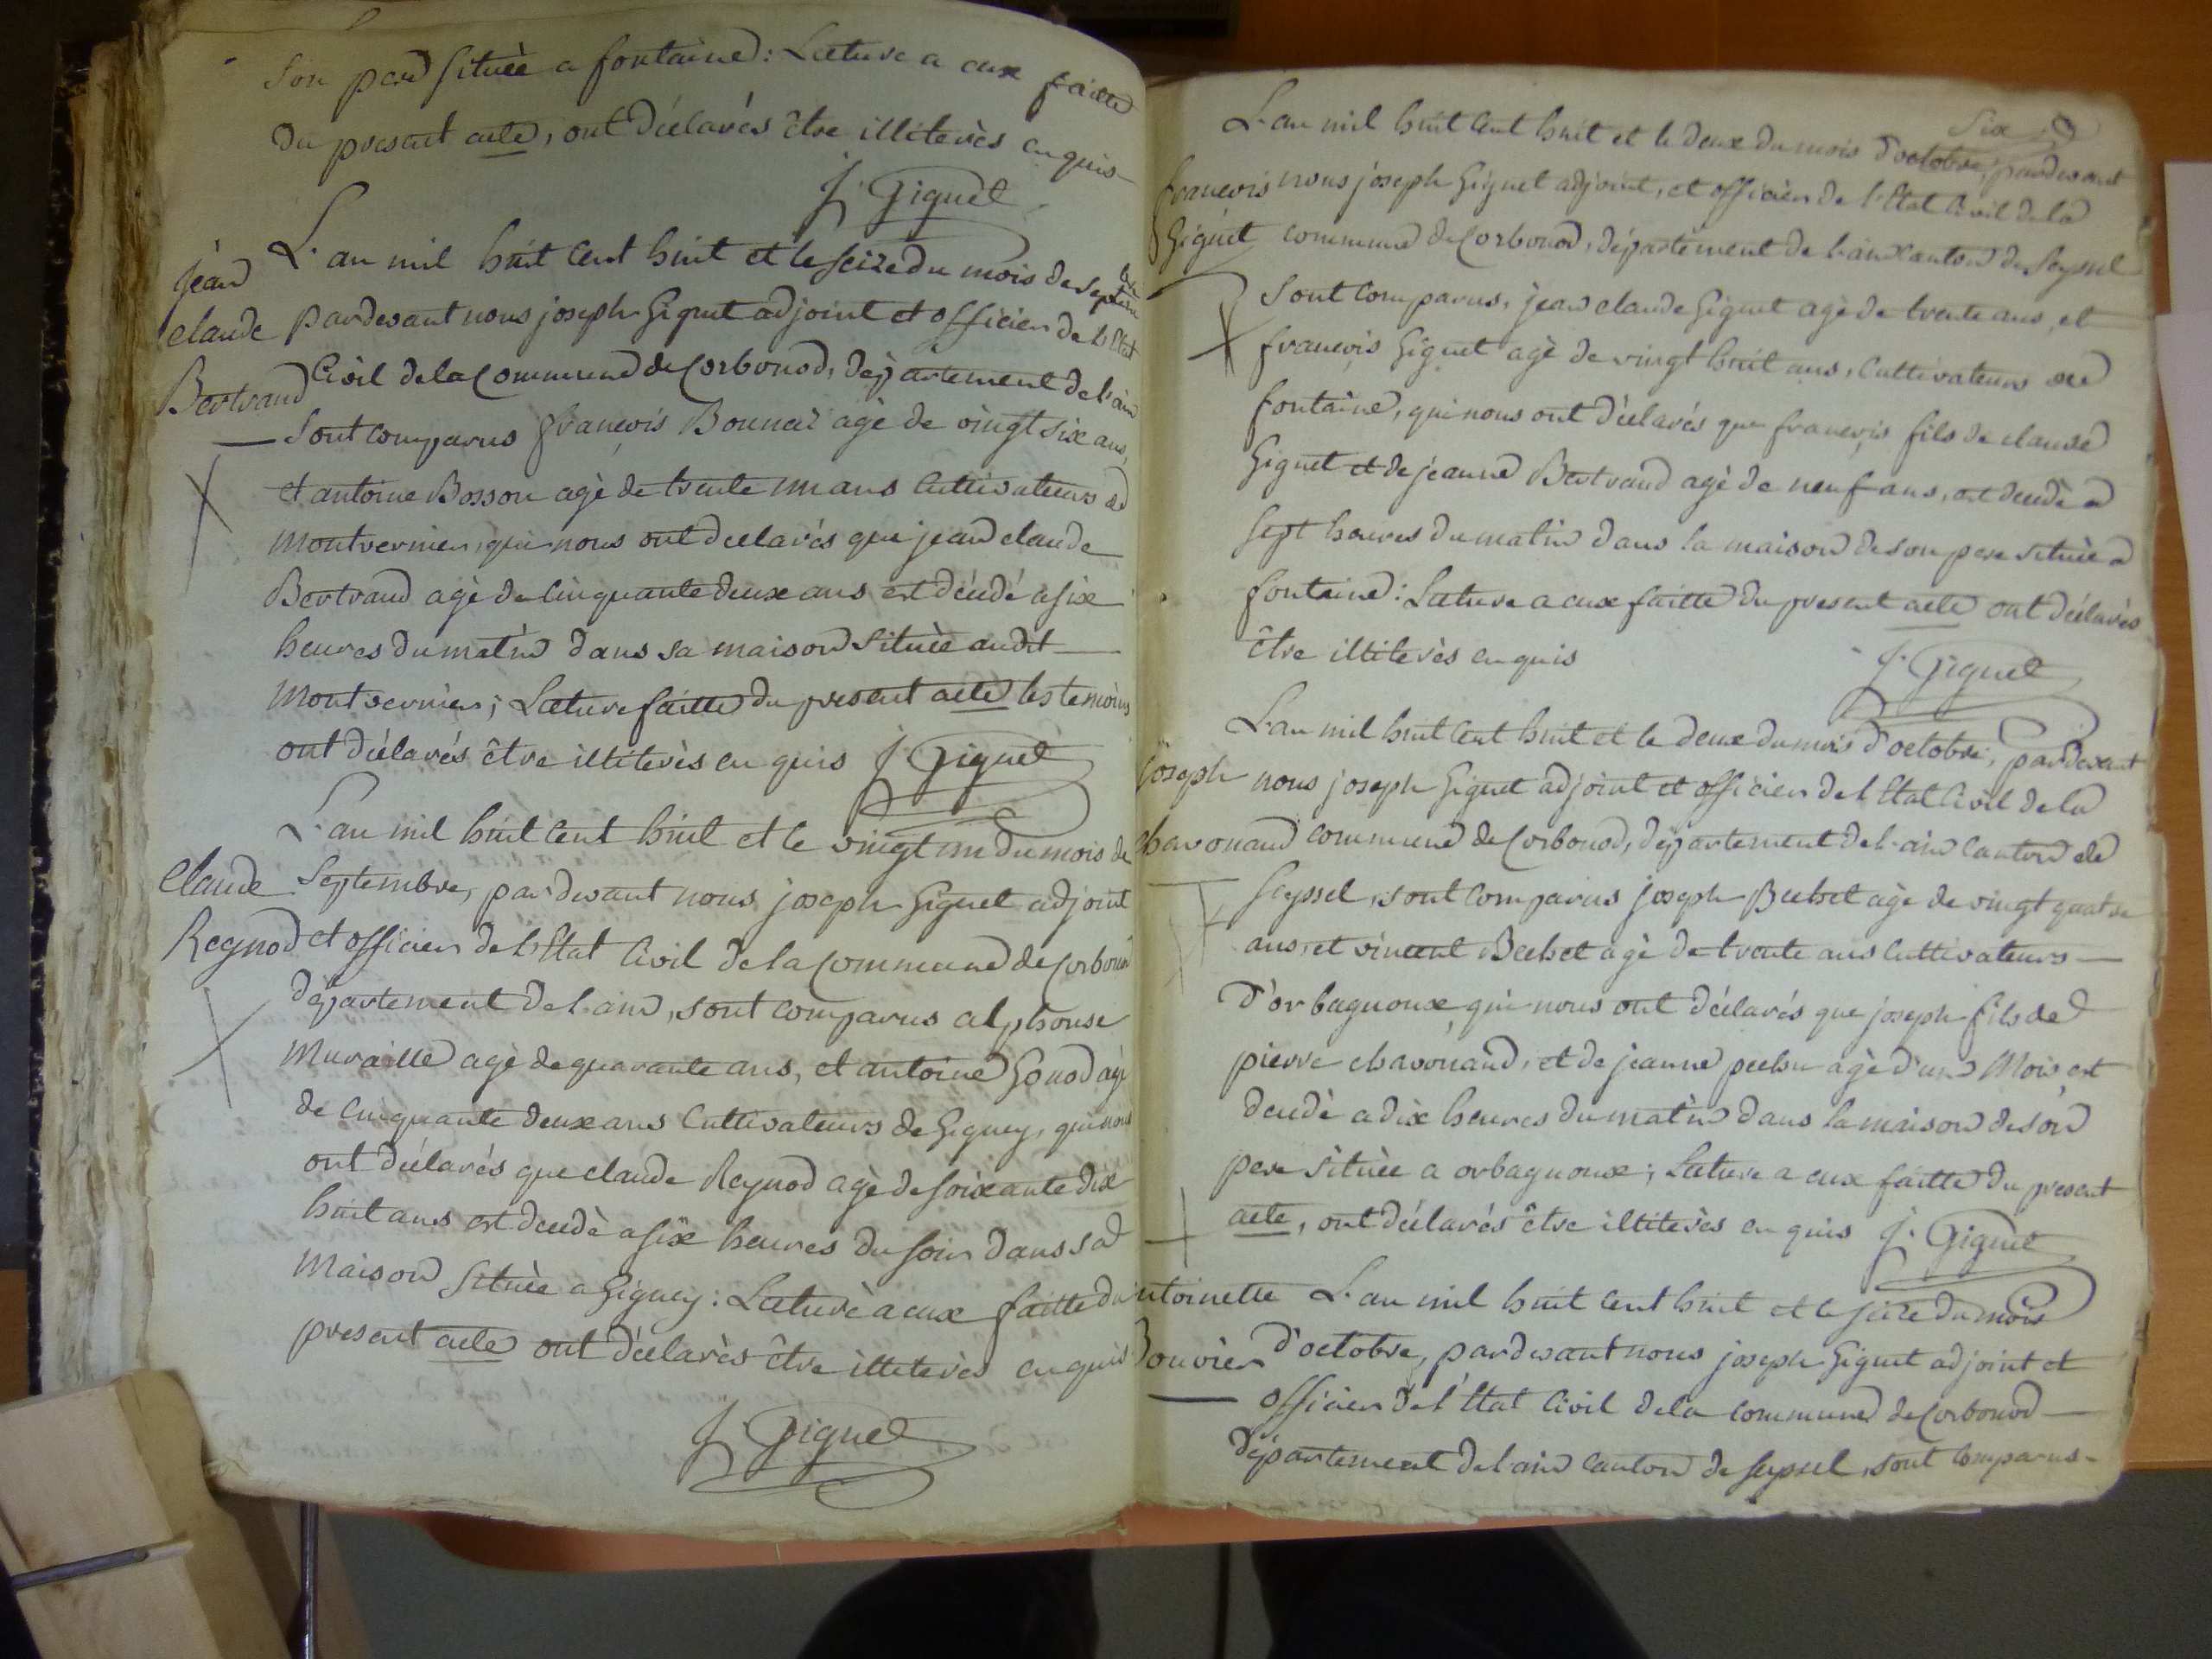 Son pere Située a fontaine: Lecture a eux faitte
du present acte, ont déclarés être illiterès enquis
J. Giguet
L'an mil huit Cent huit et le Seize du mois de Septembre
jean
claude
Bertrand
pardevant nous joseph Giguet adjoint et officier de l'Etat
Civil de la Commune de Corbonod, département de l'ain
Sont comparus françois Bonnaz agé de vingt Six ans,
et antoine Bosson agè de trente un ans Cultivateurs a
Montvernier, qui nous ont déclarés que jean claude
Bertrand agè de Cinquante deux ans est décédé a six
heures du matin dans sa maison située audit
Montvernier; Lecture faitte du present acte les temoins
ont déclarés être illiterès enquis J. Giguet
L'an mil huit Cent huit et le vingt un du mois de
Claude
Reynod
Septembre, pardevant nous joseph Giguet adjoint
et officier de l'Etat Civil de la Commune de Corbonod
département de l'ain, sont comparus alphonse
Muraille agè de quarante ans, et antoine Gonod agè
de Cinquante deux ans Cultivateurs de Gignez, qui nous
ont déclarés que claude Reynod agè de soixante dix
huit ans est decedè a six heures du soir dans sa
Maison Située a Gignez: Lecture a eux faitte du
present acte ont déclarès être illiterès enquis
J. Giguet
Six
L'an mil huit Cent huit et le deux du mois d'octobre, pardevant
françois
Giguet
nous joseph Giguet adjoint, et officier de l'Etat Civil de la
commune de Corbonod, département de l'ain Canton de Seyssel
Sont Comparus, jean claude Giguet agè de trente ans, et
françois Giguet agè de vingt huit ans, Cultivateurs de
fontaine, qui nous ont déclarés que françois fils de claude
Giguet et de jeanne Bertrand agè de neuf ans, est decedè a
Sept heures du matin dans la maison de son pere située a
fontaine: Lecture a eux faitte du present acte ont déclarès
être illiterès enquis
J. Giguet
L'an mil huit Cent huit et le deux du mois d'octobre, pardevant
joseph
chavonand
nous joseph Giguet adjoint et officier de l'Etat Civil de la
commune de Corbonod, département de l'ain Canton de
Seyssel, sont Comparus joseph Bechet agè de vingt quatre
ans, et vincent Bechet agè de trente ans Cultivateurs
d'orbagnoux qui nous ont déclarés que joseph fils de
pierre chavonand, et de jeanne agè d'un Mois, est
decedè a dix heures du matin dans la maison de son
pere située a orbagnoux; Lecture a eux faitte du present
acte, ont déclarés être illiterès enquis J. Giguet
antoinette
Bouvier
L'an mil huit Cent huit et le seize du mois
d'octobre, pardevant nous joseph Giguet adjoint et
officier de l'Etat Civil de la commune de Corbonod
département de l'ain canton de Seyssel, sont Comparus